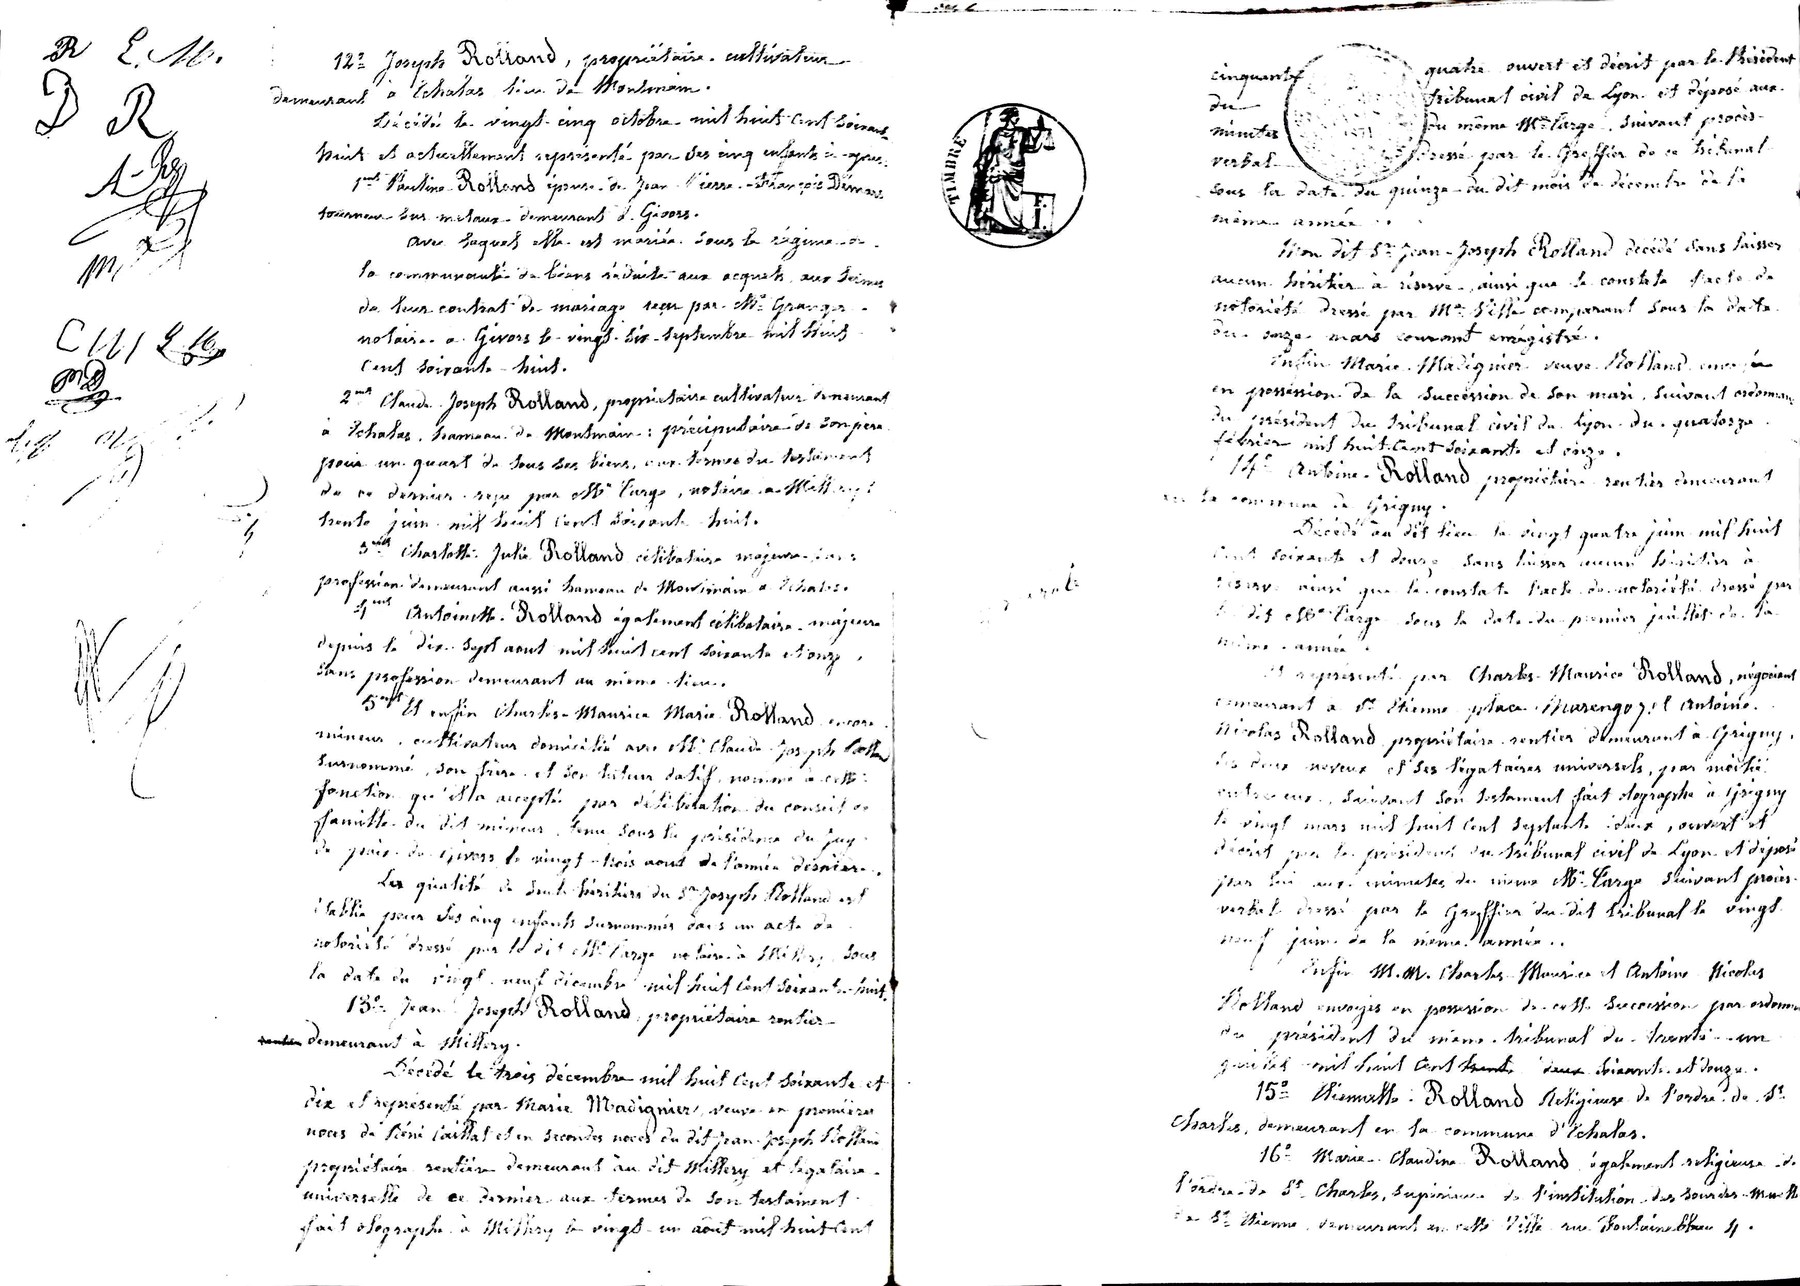 12º Joseph Rolland, propriétaire cultivateur
demeurant à Echalas lieu de Montmain.
Décédé le vingt cinq octobre mil huit cent soixante
huit et actuellement représenté par ses cinq enfants ci-après
1ent Pauline Rolland épouse de Jean Pierre François
tourneur sur métaux demeurant à Givors.
avec lequel elle est mariée sous le régime de
la communauté de biens réduite aux acquets aux termes
de leur contrat de mariage reçu par Me Granger
notaire à Givors le vingt six septembre mil huit
cent soixante huit.
2ent Claude Joseph Rolland, propriétaire cultivateur demeurant
à Echalas, hameau de Montmain : préciputaire de son père
pour un quart de tous ses biens, aux termes du testament
de ce dernier reçu par Me Targe, notaire à Millery
trente juin mil huit cent soixante huit.
3ent Charlotte Julie Rolland célibataire majeure sans
profession demeurant aussi hameau de Montmain à Echalas.
4ent Antoinette Rolland également célibataire majeure
depuis le dix sept aout mil huit cent soixante et onze,
sans profession demeurant au même lieu.
5ent Et enfin Charles Maurice Marie Rolland encore
mineur, cultivateur domicilié avec Mr Claude Joseph Rolland
surnommé, son frère et son tuteur datif, nommé à cette
fonction qu'il a acceptée par délibération du conseil de
famille du dit mineur, tenu sous la présidence du juge
de paix de Givors le vingt trois aout de l'année dernière.
Les qualité de seuls héritiers du Sr Joseph Rolland est
établie pour ses cinq enfants surnommés dans un acte de
notoriété dressé par le dit Me Targe notaire à Millery sous
la date du vingt neuf décembre mil huit cent soixante huit.
13º Jean Joseph Rolland, propriétaire rentier
demeurant à Millery.
Décédé le trois décembre mil huit cent soixante et
dix et représenté par Marie Madignier, veuve en premières
noces de Réné Caillat et en secondes noces du dit Jean Joseph Rolland
propriétaire rentière demeurant au dit Millery et légataire
universelle de ce dernier aux termes de son testament
fait olographe à Millery le vingt un août mil huit cent
TIMBRE
cinquante quatre ouvert et décrit par le Président
du tribunal civil de Lyon et déposé aux
minutes du même Me Targe, suivant procès-
verbal dressé par le Greffier de ce tribunal
sous la date du quinze du dit mois de décembre de la
même année.
Mon dit Sr Jean Joseph Rolland décédé sans laisser
aucun héritier à réserve, ainsi que le constate l'acte de
notoriété dressé par Me comparant sous la date
du onze mars courant enregistré.
Enfin Marie Madignier veuve Rolland envoyée
en possession de la succession de son mari, suivant ordonnance
du président du tribunal civil de Lyon du quatorze
février mil huit cent soixante et onze.
14º Antoine Rolland propriétaire rentier demeurant
en la commune de Grigny.
Décédé au dit lieu le vingt quatre juin mil huit
cent soixante et douze sans laisser aucun héritier à
réserve ainsi que le constate l'acte de notoriété dressé par
le dit Me Targe sous la date du premier juillet de la
même année.
Et représenté par Charles Maurice Rolland, négociant
demeurant à St Etienne place Marengo 7, et Antoine
Nicolas Rolland propriétaire rentier demeurant à Grigny,
ses deux neveux et ses légataires universels, par moitié
entre eux, suivant son testament fait olographe à Grigny
le vingt mars mil huit cent septante deux, ouvert et
décrit par le président du tribunal civil de Lyon et déposé
par lui aux minutes du même Me Targe suivant procès-
verbal dressé par le Greffier du dit tribunal le vingt
neuf juin de la même année.
Enfin M.M. Charles Maurice et Antoine Nicolas
Rolland envoyés en possession de cette succession par ordonnance
du président du même tribunal du trente un
juillet mil huit cent soixante et douze.
15º Etiennette Rolland Religieuse de l'ordre de St
Charles, demeurant en la commune d'Echalas.
16º Marie Claudine Rolland également religieuse de
l'ordre de St Charles, supérieure de l'institution des sourdes-muettes
de St Etienne, demeurant en cette ville rue Fontainebleau 4.